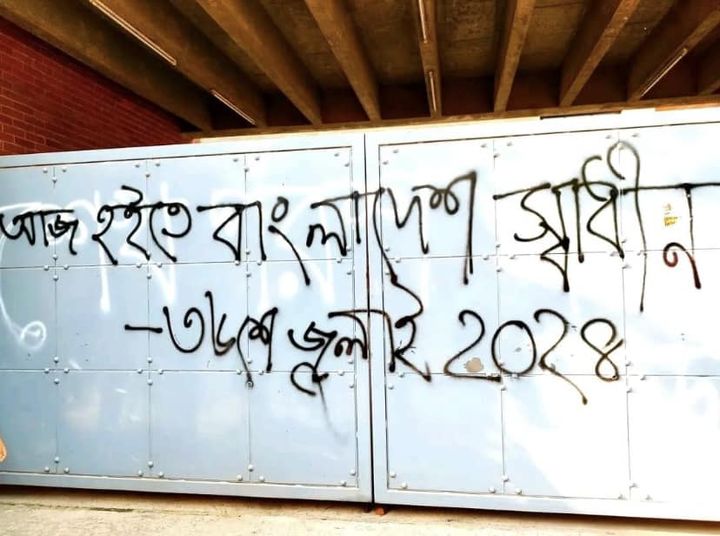 আজ হইতে বাংলাদেশ স্বাধীন
-৩৬শে জুলাই ২০২৪